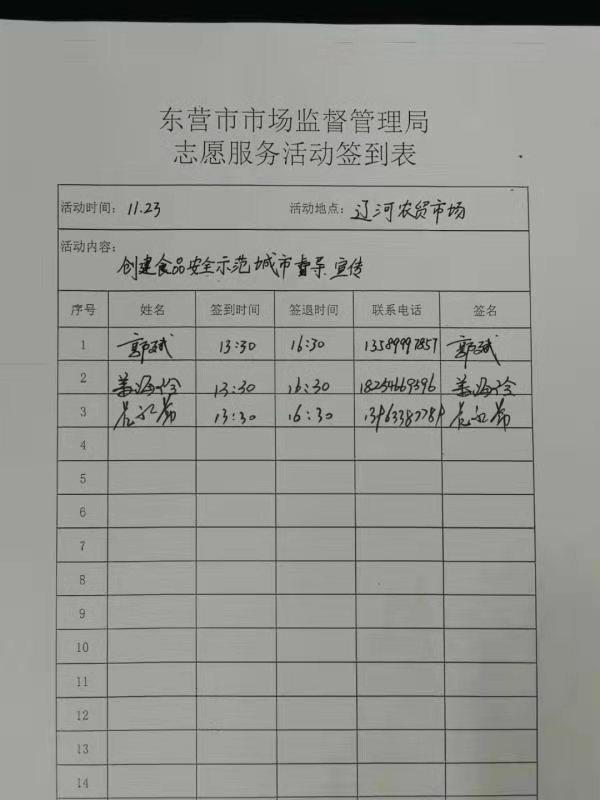 东营市市场监督管理局
志愿服务活动签到表
活动时间: 11.23 活动地点: 辽河农贸市场
活动内容:
创建食品安全示范城市督导宣传
序号 姓名 签到时间 签退时间 联系电话 签名
1 郭斌 13:30 16:30 13589997857 郭斌
2 13:30 16:30 18254669396
3 13:30 16:30
4
5
6
7
8
9
10
11
12
13
14